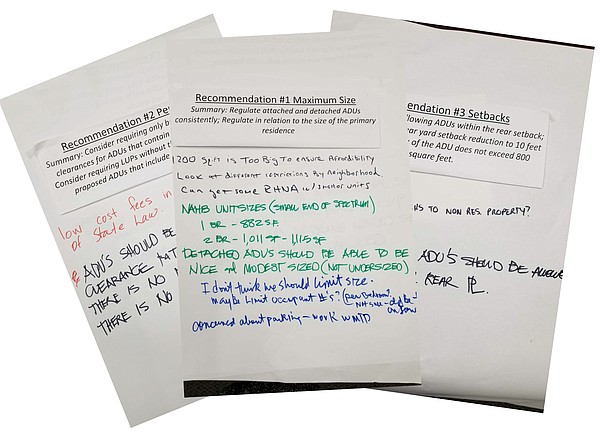 Recommendation #2 Pe
Summary: Consider requiring only b
clearances for ADUs that contain
Consider requiring LUPs without t
proposed ADUs that include
low cost fees in
of State Law.
ADU'S SHOULD BE
CLEARANCE
THERE IS NO
THERE IS NO
Recommendation #1 Maximum Size
Summary: Regulate attached and detached ADUs
consistently; Regulate in relation to the size of the primary
residence
1200 Sq.ft is Too Big To ensure Affordibility
Look at different restrictions By neighborhood.
Can get some RHNA w/smaller units
NAHB UNIT SIZES (SMALL END OF SPECTRUM)
1 BR - 882 SF
2 BR - 1,011 SF - 1,115 SF
DETACHED ADU'S SHOULD BE ABLE TO BE
NICE MODEST SIZED (NOT UNDERSIZED)
I don't think we should limit size.
maybe Limit occupant #'s?
concerned about parking - work w MTD
endation #3 Setbacks
lowing ADUs within the rear setback;
ear yard setback reduction to 10 feet
of the ADU does not exceed 800
square feet.
NS TO NON RES. PROPERTY?
ADU'S SHOULD BE
REAR PL.